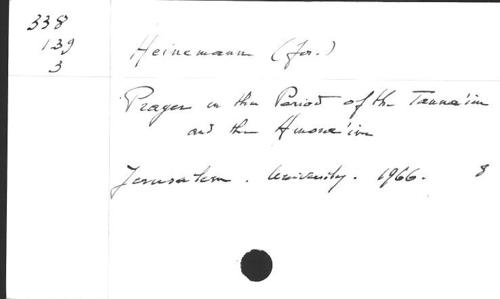 338
139
3
Heinemann (Jos.)
Prayer in the Period of the Tanna'im
and the Amora'im
Jerusalem. University. 1966. 8